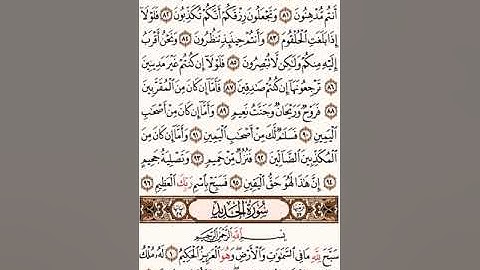 أَنتُم مُّدْهِنُونَ ٨١ وَتَجْعَلُونَ رِزْقَكُمْ أَنَّكُمْ تُكَذِّبُونَ ٨٢ فَلَوْلَا
إِذَا بَلَغَتِ الْحُلْقُومَ ٨٣ وَأَنتُمْ حِينَئِذٍ تَنظُرُونَ ٨٤ وَنَحْنُ أَقْرَبُ
إِلَيْهِ مِنكُمْ وَلَٰكِن لَّا تُبْصِرُونَ ٨٥ فَلَوْلَا إِن كُنتُمْ غَيْرَ مَدِينِينَ
٨٦ تَرْجِعُونَهَا إِن كُنتُمْ صَادِقِينَ ٨٧ فَأَمَّا إِن كَانَ مِنَ الْمُقَرَّبِينَ
٨٨ فَرَوْحٌ وَرَيْحَانٌ وَجَنَّتُ نَعِيمٍ ٨٩ وَأَمَّا إِن كَانَ مِنْ أَصْحَابِ
الْيَمِينِ ٩٠ فَسَلَامٌ لَّكَ مِنْ أَصْحَابِ الْيَمِينِ ٩١ وَأَمَّا إِن كَانَ مِنَ
الْمُكَذِّبِينَ الضَّالِّينَ ٩٢ فَنُزُلٌ مِّنْ حَمِيمٍ ٩٣ وَتَصْلِيَةُ جَحِيمٍ
٩٤ إِنَّ هَٰذَا لَهُوَ حَقُّ الْيَقِينِ ٩٥ فَسَبِّحْ بِاسْمِ رَبِّكَ الْعَظِيمِ ٩٦
سُورَةُ الْحَدِيدِ
بِسْمِ اللَّهِ الرَّحْمَٰنِ الرَّحِيمِ
سَبَّحَ لِلَّهِ مَا فِي السَّمَاوَاتِ وَالْأَرْضِ وَهُوَ الْعَزِيزُ الْحَكِيمُ ١ لَهُ مُلْكُ